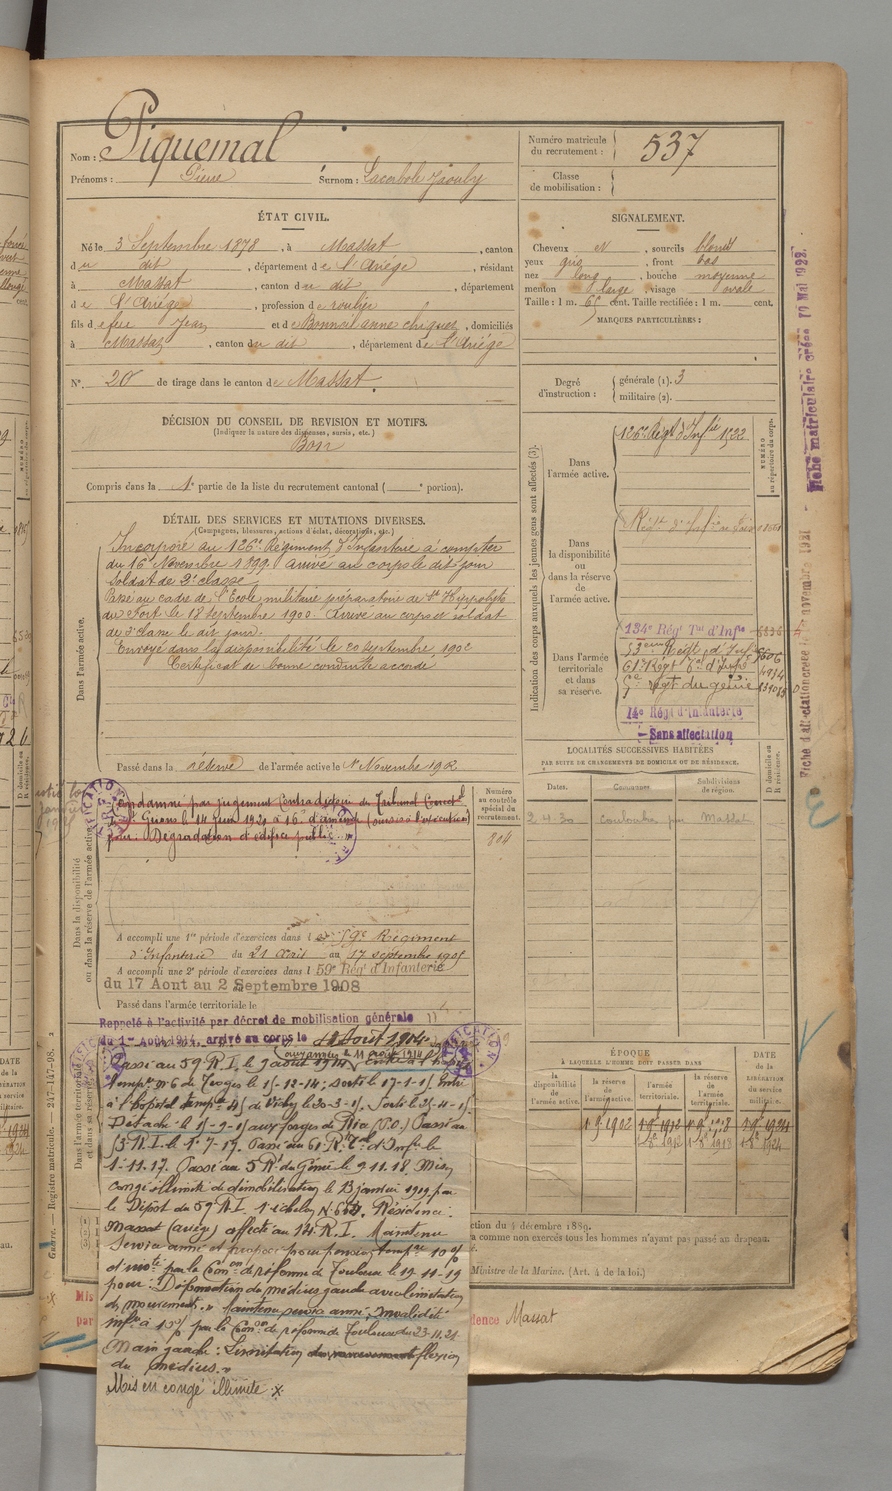 Nom : Piquemal
Prénoms : Pierre Surnom : Lacerbole Jaouly
Numéro matricule du recrutement : 537
Classe de mobilisation :
ÉTAT CIVIL.
Né le 3 Septembre 1878, à Massat, canton
du dit, département de l'Ariége, résidant
à Massat, canton du dit, département
de l'Ariége, profession de roulier
fils de feu Jean et de Bonneil anne, domiciliés
à Massat, canton du dit, département de l'Ariége
N° 20 de tirage dans le canton de Massat.
SIGNALEMENT.
Cheveux et, sourcils blonds
yeux gris, front bas
nez long, bouche moyenne
menton large, visage ovale
Taille : 1 m. 65 cent. Taille rectifiée : 1 m. cent.
MARQUES PARTICULIÈRES :
Degré d'instruction : générale (1). 3
militaire (2).
DÉCISION DU CONSEIL DE REVISION ET MOTIFS.
(Indiquer la nature des dispenses, sursis, etc.)
Bon
Compris dans la 1e partie de la liste du recrutement cantonal ( portion).
DÉTAIL DES SERVICES ET MUTATIONS DIVERSES.
(Campagnes, blessures, actions d'éclat, décorations, etc.)
Dans l'armée active.
Incorporé au 126e Régiment d'Infanterie à compter
du 16 Novembre 1899 arrivé au corps le dit jour
soldat de 2e classe
Passé au cadre de l'Ecole militaire préparatoire de St Hyppolyte
du Fort le 18 Septembre 1900. Arrivé au corps et soldat
de 2e classe le dit jour.
Envoyé dans la disponibilité le 20 Septembre 1902
Certificat de bonne conduite accordé
Passé dans la réserve de l'armée active le 1r Novembre 1902
Indication des corps auxquels les jeunes gens sont affectés (3).
NUMÉRO au répertoire du corps.
Dans l'armée active.
126e Régt d'Infie 1522
Dans la disponibilité ou dans la réserve de l'armée active.
Dans l'armée territoriale et dans sa réserve.
134e Régt Tal d'Infie
53eme Regt d'Inf
61e Regt Tal d'Infie 4914
5e regt du génie
14e Régt d'Infanterie
Sans affectation
Fiche matriculaire créée 10 Mai 1922.
Fiche d'affectation créée novembre 1921
Dans la disponibilité ou dans la réserve de l'armée active.
Condamné par jugement Contradictoire du Tribunal Correctl
de St Girons le 14 Juin 1921 à 16f d'amende (sursis à l'exécution)
pour : Dégradation d'édifice public
Numéro au contrôle spécial du recrutement.
804
A accompli une 1re période d'exercices dans le 59e Régiment
d'Infanterie du 21 au 17 septembre 1905
A accompli une 2e période d'exercices dans le 59e Régt d'Infanterie
du 17 Aout au 2 Septembre 1908
Passé dans l'armée territoriale le
LOCALITÉS SUCCESSIVES HABITÉES
PAR SUITE DE CHANGEMENTS DE DOMICILE OU DE RÉSIDENCE.
Dates. Communes. Subdivisions de région. D. domicile ou R. résidence.
2.4.30 Massat
Dans l'armée territoriale et dans sa réserve
Rappelé à l'activité par décret de mobilisation générale
du 1er Août 1914, arrivé au corps le
Passé au 59 R.I. le 9 aout 1914
aux armées le 11 août 1914
tempre n° 6 de Troyes le 15-12-14 : sorti le 17-1-15 Entré
à l'hopital tempre 45 de Vichy le 20-3-15. Sorti le 25-4-15
Détaché le 15-9-15 aux forges de Rive (P.O.) Passé au
53 R.I. le 1r 7-17. Passé au 61 Rt Tal d'Infie le
1-11-17. Passé au 5 Rt du Génie le 9 11. 18. Mis en
congé illimité de démobilisation le 13 janvier 1919 par
le Dépôt du 59 R.I. 1r échelon N° Résidence :
Massat (Ariège) affecté au 14 R.I. Maintenu
service armé et proposé pour pension tempre 10 %
par la Comon de réforme de Toulouse le 19-11-19
pour : Déformation du médius gauche avec limitation
des mouvements. " Maintenu service armé, Invalidité
infre à 10% par la Comon de réforme de Toulouse du 23-11-21
Main gauche : Limitation des mouvements flexion
du médius. "
Mis en congé illimité.
ÉPOQUE
À LAQUELLE L'HOMME DOIT PASSER DANS
la disponibilité de l'armée active. la réserve de l'armée active. l'armée territoriale. la réserve de l'armée territoriale.
DATE de la LIBÉRATION du service militaire.
1. 9bre 1902
ction du 4 décembre 1889.
a comme non exercés tous les hommes n'ayant pas passé au drapeau.
Ministre de la Marine. (Art. 4 de la loi.)
dence Massat
Guerre. — Registre matricule. — 247-147-98.